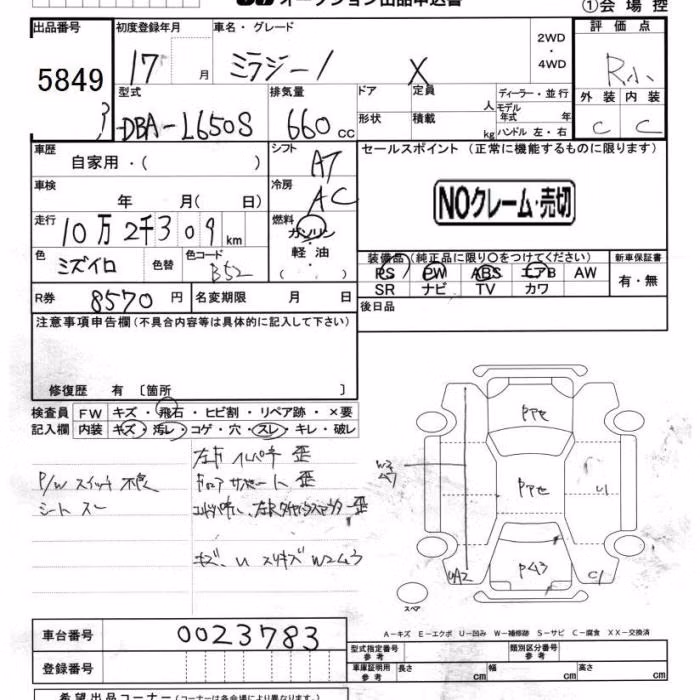 オークション出品申込書
①会場控
出品番号 初度登録年月 車名・グレード 評価点
5849 17 月 ミラジーノ X 2WD・4WD R小
型式 排気量 ドア 定員 人 ディーラー・並行 外装 内装
DBA-L650S 660 cc 形状 積載 kg モデル年式 年 ハンドル 左・右 C C
車歴 自家用・( ) シフト AT セールスポイント(正常に機能するものに限ります)
車検 年 月( 日) 冷房 AC NOクレーム・売切
走行 10万2千309 km 燃料 ガソリン・軽油・( )
装備品(純正品に限り○をつけてください) 新車保証書
色 ミズイロ 色替 色コード B52 PS PW ABS エアB AW 有・無
SR ナビ TV カワ
R券 8570円 名変期限 月 日 後日品
注意事項申告欄(不具合内容等は具体的に記入して下さい)
修復歴 有〔箇所 〕
検査員 FW キズ・飛石・ヒビ割・リペア跡・×要
記入欄 内装 キズ・汚レ・コゲ・穴・スレ・キレ・破レ
P/W スイッチ 不良
シート スレ
キズ、U スリキズ W2ムラ
W3
U1
UA2
C1
スペア
A-キズ E-エクボ U-凹み W-補修跡 S-サビ C-腐食 XX-交換済
車台番号 0023783 型式指定番号 参考 類別区分番号 参考
登録番号 車庫証明用 参考 長さ cm 幅 cm 高さ cm
希望出品コーナー(コーナーは各会場により異なります)